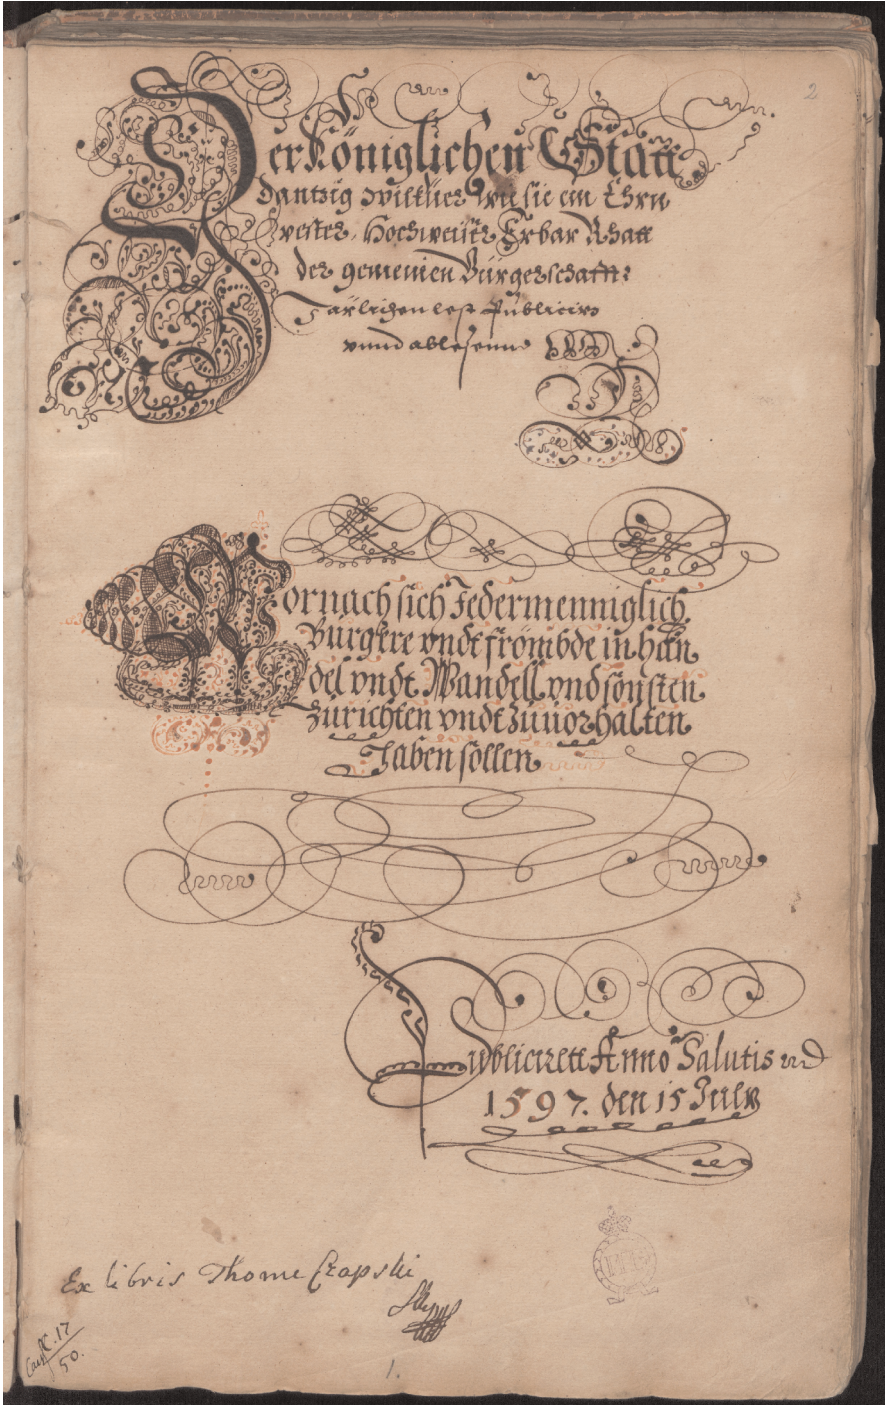 2
Der Königlichen Statt
Dantzig Willkür wie sie ein Ehrn
vester, Hochweiser Erbar Rhatt
der gemeinen Bürgerschafft
Järlichen lest Publiciren
vnnd ablesenn
Wornach sich Jedermenniglich
Bürgere vndt frömbde in Han
del vndt Wandell vnd sonsten
Zurichten vndt Zuuorhalten
Haben sollen
Publicirett Anno Salutis
1597. den 15 July
Ex libris Thome Czapski
C. 17
50.
1.